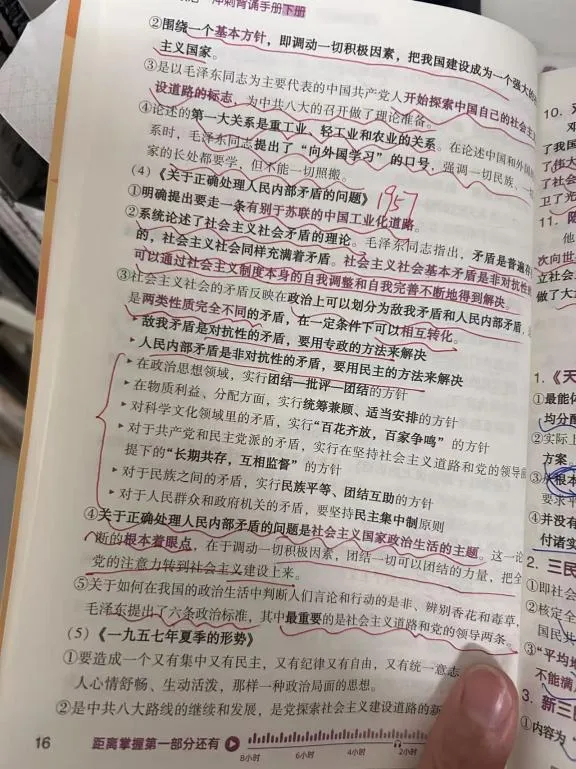 冲刺背诵手册下册
②围绕一个基本方针，即调动一切积极因素，把我国建设成为一个强大的
主义国家。
③是以毛泽东同志为主要代表的中国共产党人开始探索中国自己的社会主
设道路的标志，为中共八大的召开做了理论准备。
④论述的第一大关系是重工业、轻工业和农业的关系。在论述中国和外国
系时，毛泽东同志提出了“向外国学习”的口号，强调一切民族、一
家的长处都要学，但不能一切照搬。
（4）《关于正确处理人民内部矛盾的问题》 1957
①明确提出要走一条有别于苏联的中国工业化道路。
②系统论述了社会主义社会矛盾的理论。毛泽东同志指出，矛盾是普遍存
的，社会主义社会同样充满着矛盾。社会主义社会基本矛盾是非对抗性
可以通过社会主义制度本身的自我调整和自我完善不断地得到解决。
③社会主义社会的矛盾反映在政治上可以划分为敌我矛盾和人民内部矛盾，
是两类性质完全不同的矛盾，在一定条件下可以相互转化。
▸敌我矛盾是对抗性的矛盾，要用专政的方法来解决
▸人民内部矛盾是非对抗性的矛盾，要用民主的方法来解决
▸在政治思想领域，实行团结—批评—团结的方针
▸在物质利益、分配方面，实行统筹兼顾、适当安排的方针
▸对科学文化领域里的矛盾，实行“百花齐放，百家争鸣”的方针
▸对于共产党和民主党派的矛盾，实行在坚持社会主义道路和党的领导前
提下的“长期共存，互相监督”的方针
▸对于民族之间的矛盾，实行民族平等、团结互助的方针
▸对于人民群众和政府机关的矛盾，要坚持民主集中制原则
④关于正确处理人民内部矛盾的问题是社会主义国家政治生活的主题。这一论
断的根本着眼点，在于调动一切积极因素，团结一切可以团结的力量，把全
党的注意力转到社会主义建设上来。
⑤关于如何在我国的政治生活中判断人们言论和行动的是非、辨别香花和毒草，
毛泽东提出了六条政治标准，其中最重要的是社会主义道路和党的领导两条。
（5）《一九五七年夏季的形势》
①要造成一个又有集中又有民主，又有纪律又有自由，又有统一意志
人心情舒畅、生动活泼，那样一种政治局面的思想。
②是中共八大路线的继续和发展，是党探索社会主义建设道路的新
16 距离掌握第一部分还有
8小时 6小时 4小时 2小
10.
了我国
了伟大
了社会
卫了光
11.
他
次向世
立社会
做了大
1.《天
①最能体
均分配
②实际上
方案
③从根本
要求平
④并没有
付诸实
2. 三民
①即社会
②核定全
国民共
③“平均地
不能满
3. 新三民
①内容为